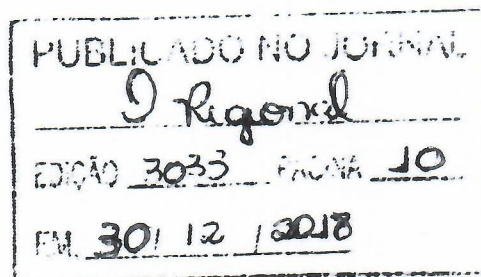 PUBLICADO NO JORNAL
O Regional
EDIÇÃO 3033 PÁGINA 10
EM 30 / 12 / 2018